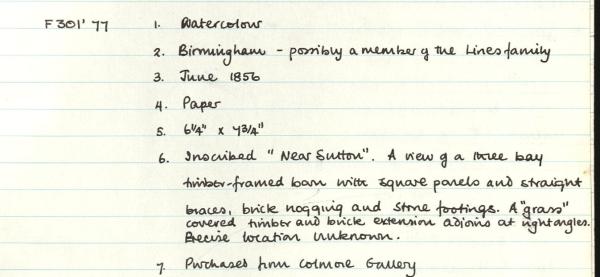 F301'77
1. Watercolour
2. Birmingham - possibly a member of the Lines family
3. June 1856
4. Paper
5. 6¼" x 4¾"
6. Inscribed "Near Sutton". A view of a three bay
timber-framed barn with square panels and straight
braces, brick nogging and stone footings. A "grass"
covered timber and brick extension adjoins at right angles.
Precise location unknown.
7. Purchased from Colmore Gallery